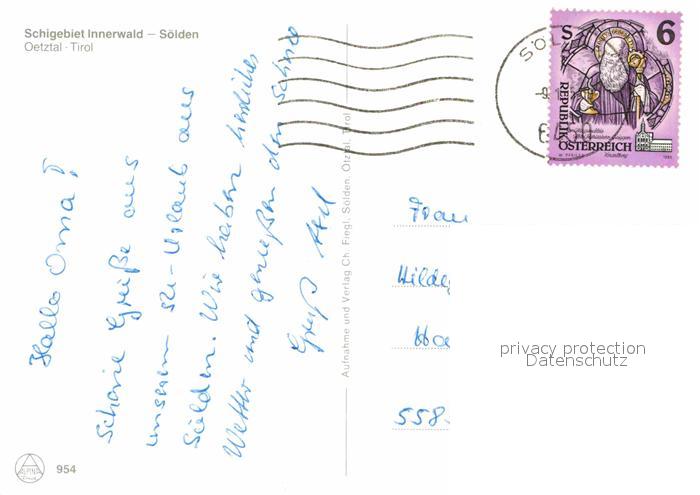 Schigebiet Innerwald – Sölden
Oetztal · Tirol
Hallo Oma!
Schöne Grüße aus
unserem Ski-Urlaub aus
Sölden. Wir haben herrliches
Wetter und genießen den Schnee
Gruß
Aufnahme und Verlag Ch. Fiegl, Sölden, Ötztal, Tirol
S 6
REPUBLIK
ÖSTERREICH
SÖL
Frau
Hilde
558
privacy protection
Datenschutz
ALPINA
954